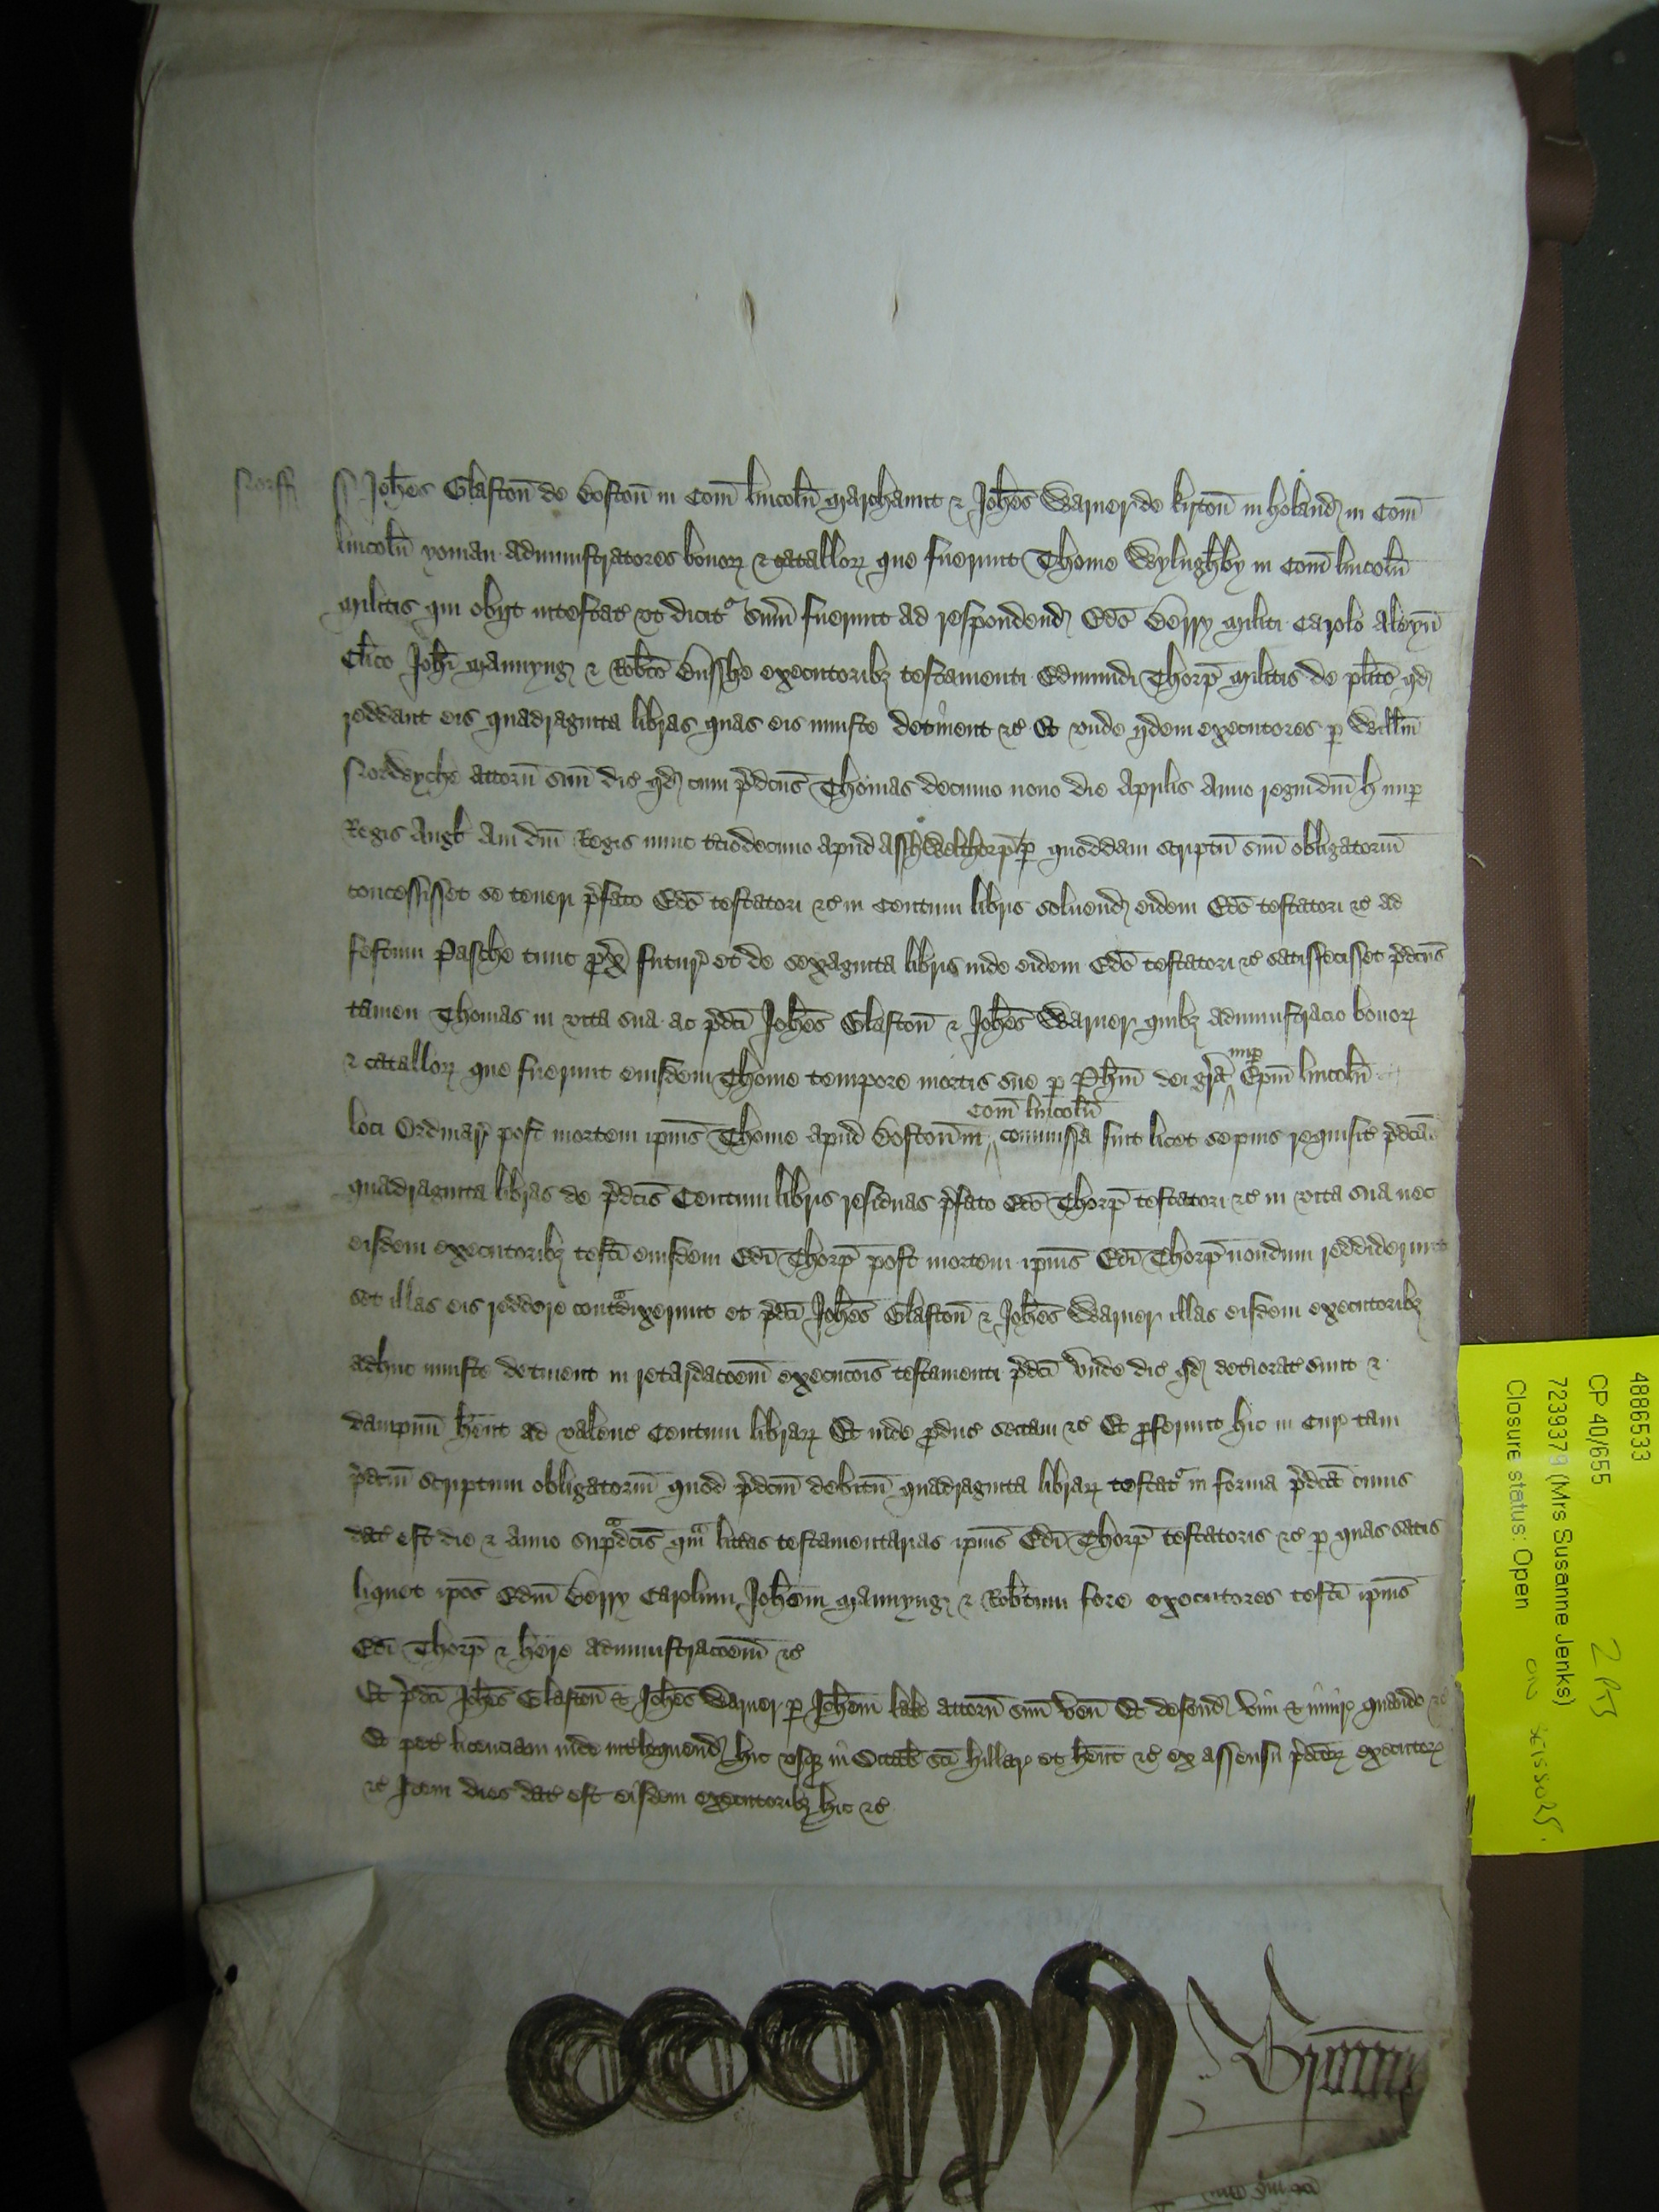 Norff ss Joh̄es Glaston̄ de Boston̄ in Com̄ lincoln̄ marchaunt & Joh̄es Warner de kirton̄ in holand in Com̄
lincoln̄ yoman administratores bonoꝝ & catalloꝝ que fuerunt Thome Wylughby in Com̄ lincoln̄
militis qui obijt intestat' vt dicit' sum̄ fuerunt ad respondend Edō Berry militi Carolo Aleyn̄
Cl̄ico Joh̄i Mannyng & Rob̄to Busshe executoribꝫ testamenti Edmundi Thorp̄ militis de pl̄ito qd
reddant eis quadraginta libras quas eis iniuste detinent &c̄ Et vnde ijdem executores ꝑ Will̄m
Norwyche attorn̄ suū dic̄ qd cum p̄dcūs Thomas decimo nono die Aprilis Anno regni dn̄i H nuꝑ
Regis Angl' Aui dn̄i Regis nunc t̄ciodecimo apud Asshwelthorp̄ ꝑ quoddam scriptū suū obligatoriū
concessisset se teneri p̄fato Edō testatori &c̄ in Centum libris soluend eidem Edō testatori &c̄ ad
festum Pasche tunc ꝓx̄ futur' et de sexaginta libris inde eidem Edō testatori &c̄ satisfecisset p̄dcūs
tamen Thomas in vita sua ac p̄dcī Joh̄es Glaston̄ & Joh̄es Warner quibꝫ administracio bonoꝝ
& catalloꝝ que fuerunt eiusdem Thome tempore mortis sue ꝑ Ph̄m dei grā nuꝑ Ep̄m lincoln̄
loci Ordinar' post mortem ipīus Thome apud Boston̄ in Com̄ lincoln̄ commissa fuit licet sepius requisit' p̄dcās
quadraginta libras de p̄dcīs Centum libris residuas p̄fato Edō Thorp̄ testatori &c̄ in vita sua nec
eisdem executoribꝫ testī eiusdem Edī Thorp̄ post mortem ipīus Edī Thorp̄ nondum reddiderunt
set illas eis reddere contᵃdixerunt et p̄dcī Joh̄es Glaston̄ & Joh̄es Warner illas eisdem executoribꝫ
adhuc iniuste detinent in retardacōem execucōis testamenti p̄dcī Vnde dic̄ qd deteriorat' sunt &
dampnū hēnt ad valenc̄ Centum libraꝝ Et inde ꝓduc̄ sectam &c̄ Et ꝓferunt hic in Cur' tam
p̄dcm̄ scriptum obligatoriū quod p̄dcm̄ debitū quadraginta libraꝝ testat' in forma p̄dcā cuius
dat' est die & Anno supᵃdcīs qᵃm litt̄as testamentarias ipīus Edī Thorp̄ testatoris &c̄ ꝑ quas satis
liquet ip̄os Edm̄ Berry Carolum Joh̄em Mannyng & Rob̄tum fore executores testī ipīus
Edī Thorp̄ & hēre administracōem &c̄
Et p̄dcī Joh̄es Glaston̄ & Joh̄es Warner ꝑ Joh̄em lake attorn̄ suū ven̄ Et defend vim & iniur' quando &c̄
Et pet' licenciam inde int̄loquend hic vsqꝫ in Octab' scī Hillar' et hēnt &c̄ ex assensu p̄dcōꝝ executoꝝ
&c̄ Idem dies dat' est eisdem executoribꝫ hic &c̄
4886533
CP 40/655
7239379 (Mrs Susanne Jenks)
Closure status: Open